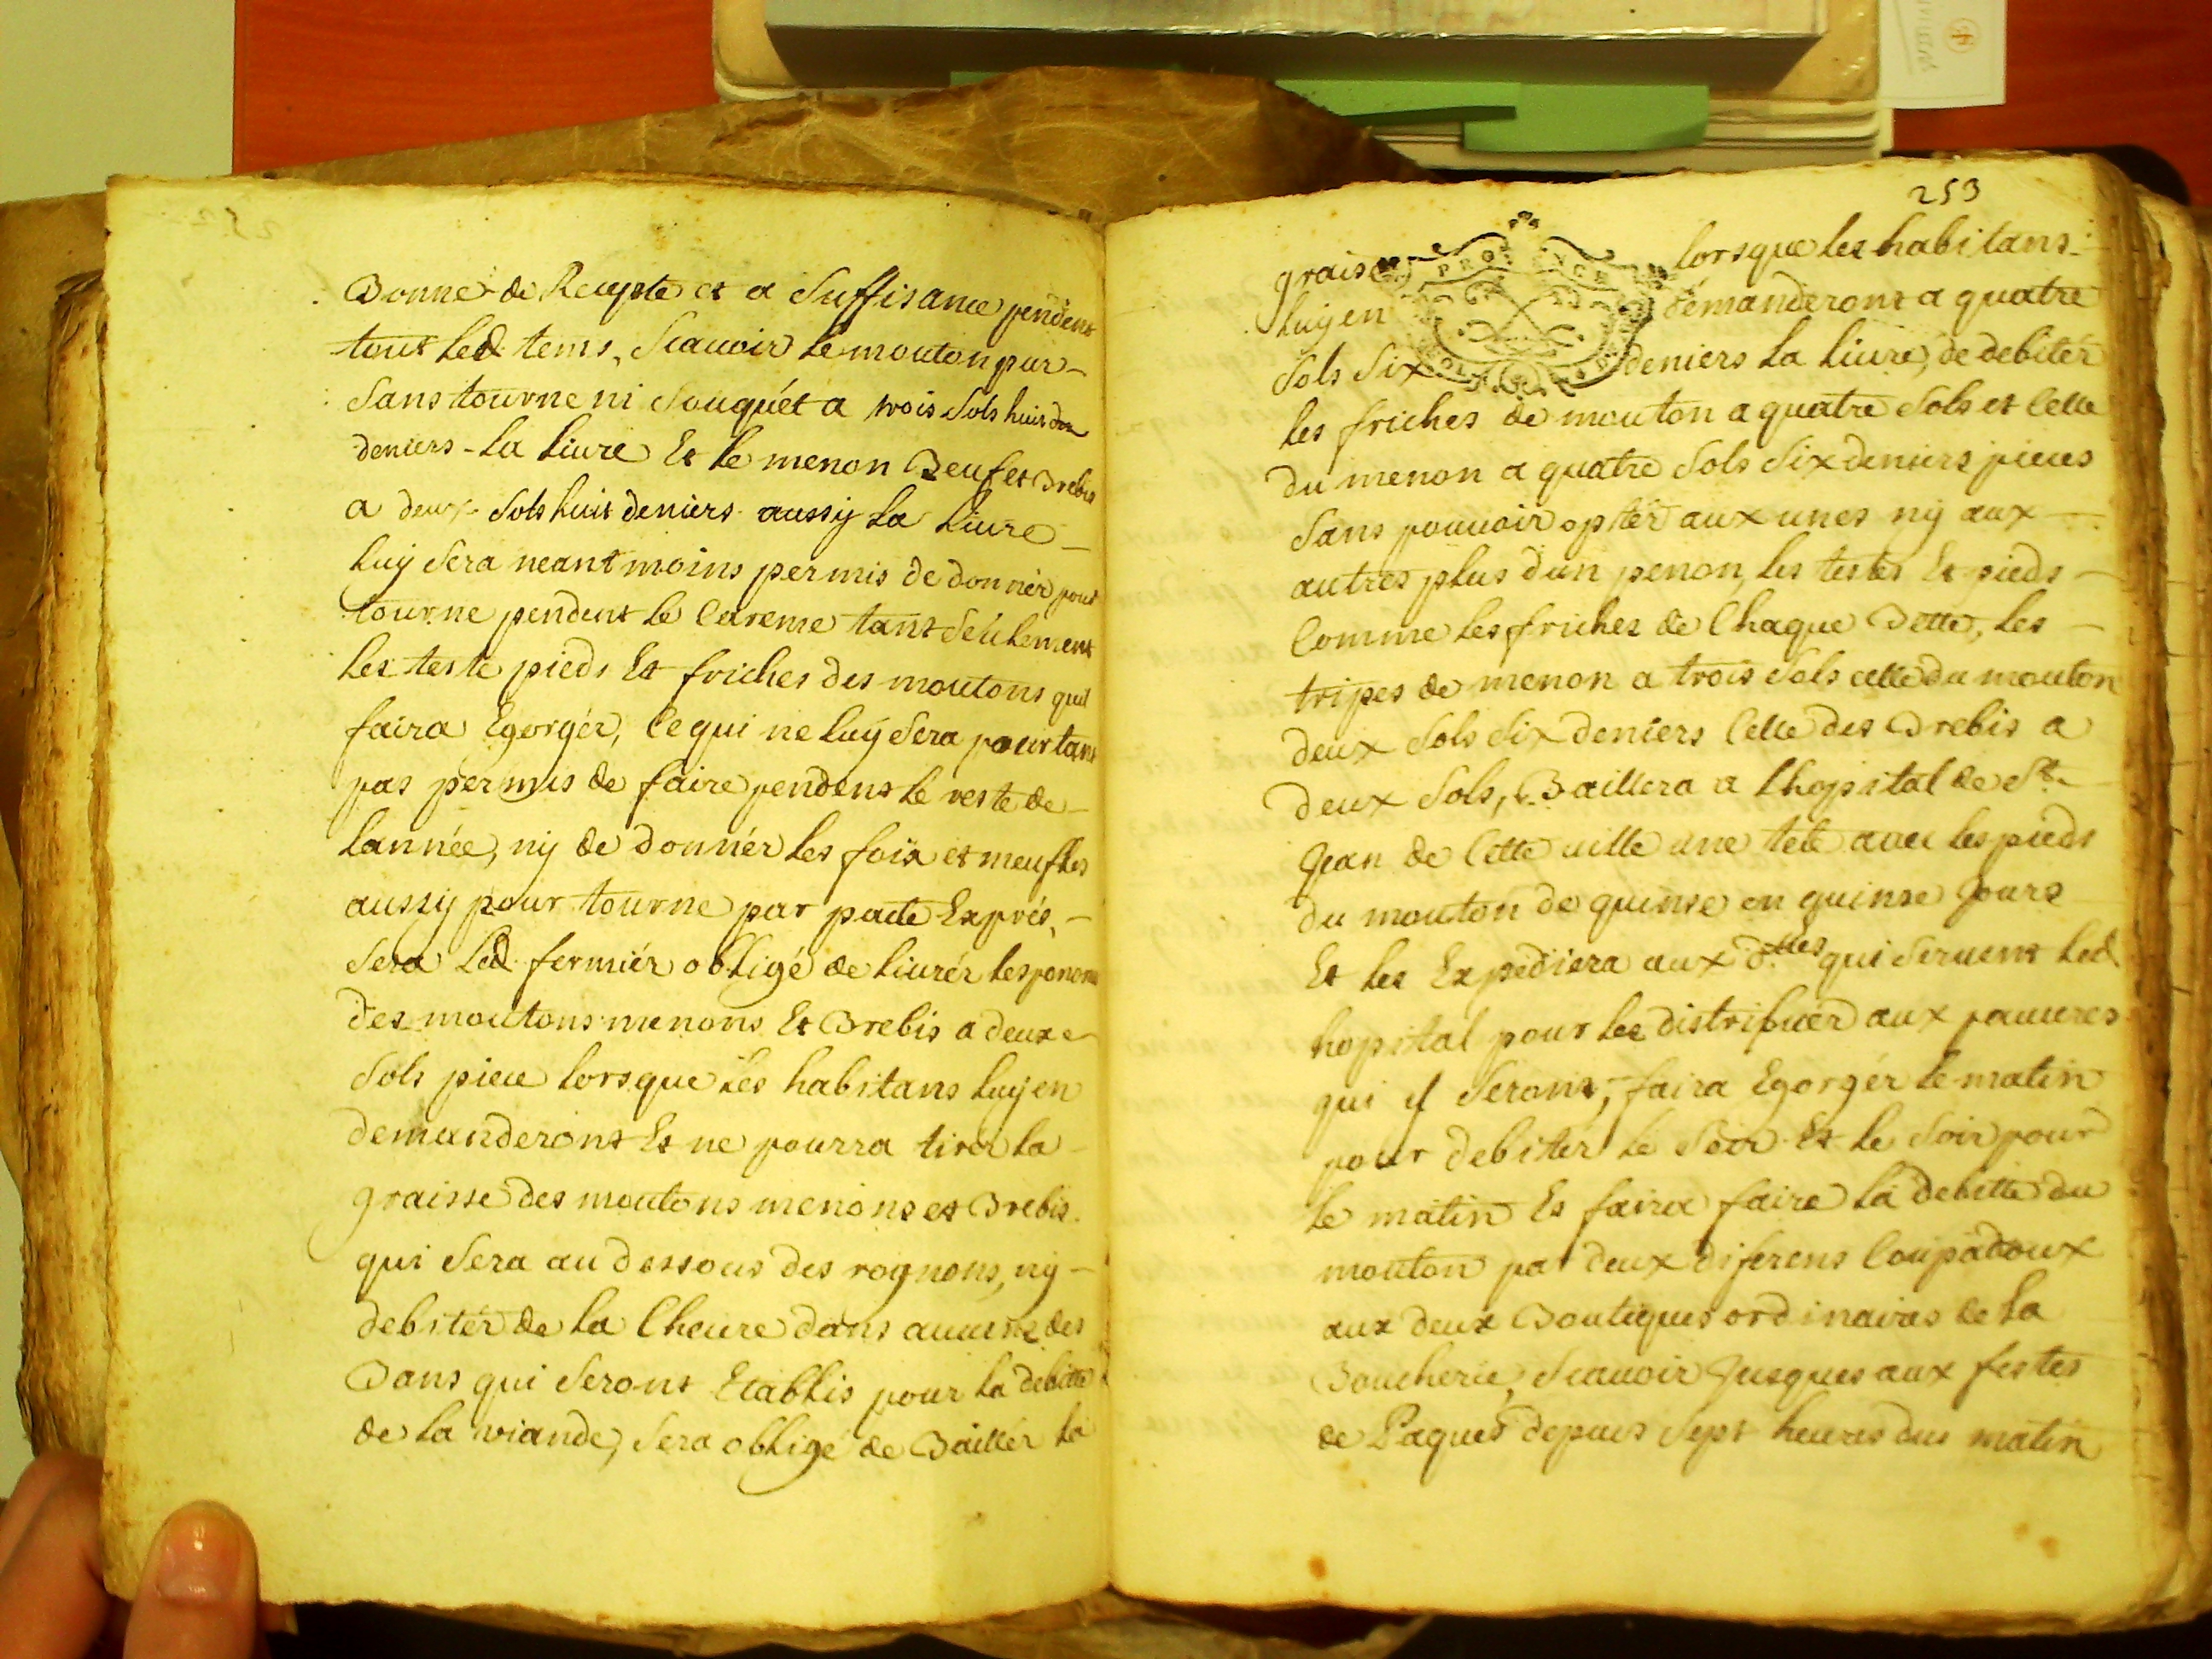 Bonne de Recepte et a Suffisance pendent
tout led. tems, Scauoir le mouton pur
Sans tourne ni Souquét a trois Sols huit
deniers la liure Et le menon Beuf et Brebis
a deux Sols huit deniers aussy la liure
luy Sera neantmoins permis de donnér pour
tourne pendent le Careme tant Seulement
les teste pieds Et friches des moutons quil
faira Egorgér, Ce qui ne luy Sera pourtant
pas permis de faire pendent le reste de
lannée, ny de donnér les foix et meufles
aussy pour tourne par pacte Exprés,
Sera led. fermiér obligé de liurér les ponons
des moutons menons Et Brebis a deux
Sols piece lorsque les habitans luy en
demanderont Et ne pourra tirer la
graisse des moutons menons et Brebis
qui Sera au dessous des rognons, ny
debitér de la Cheure dans aucuns des
Bans qui Seront Etablis pour la debitte
de la viande, Sera obligé de Baillér la
253
graisse lorsque les habitans
luy en demanderont a quatre
Sols Six deniers la liure, de debitér
les friches de mouton a quatre Sols et Celle
du menon a quatre Sols Six deniers pieces
Sans pouuoir optér aux unes ny aux
autres plus dun penon, les testes Et pieds
Comme les friches de Chaque Bette, les
tripes de menon a trois Sols celle du mouton
deux Sols Six deniers Celle des Brebis a
deux Sols, Baillera a lhopital de St.
Jean de Cette uille une tete auec les pieds
du mouton de quinse en quinse Jours
Et les Expediera aux d.lles qui Seruent led.
hopital pour les distribuer aux pauures
qui y Seront, faira Egorgér le matin
pour debiter le Soir Et le Soir pour
le matin Et faira faire la debitte du
mouton par deux diferens Coupadoux
aux deux Boutiques ordinaires de la
Boucherie, Scauoir Jusques aux festes
de Paques depuis Sept heures du matin